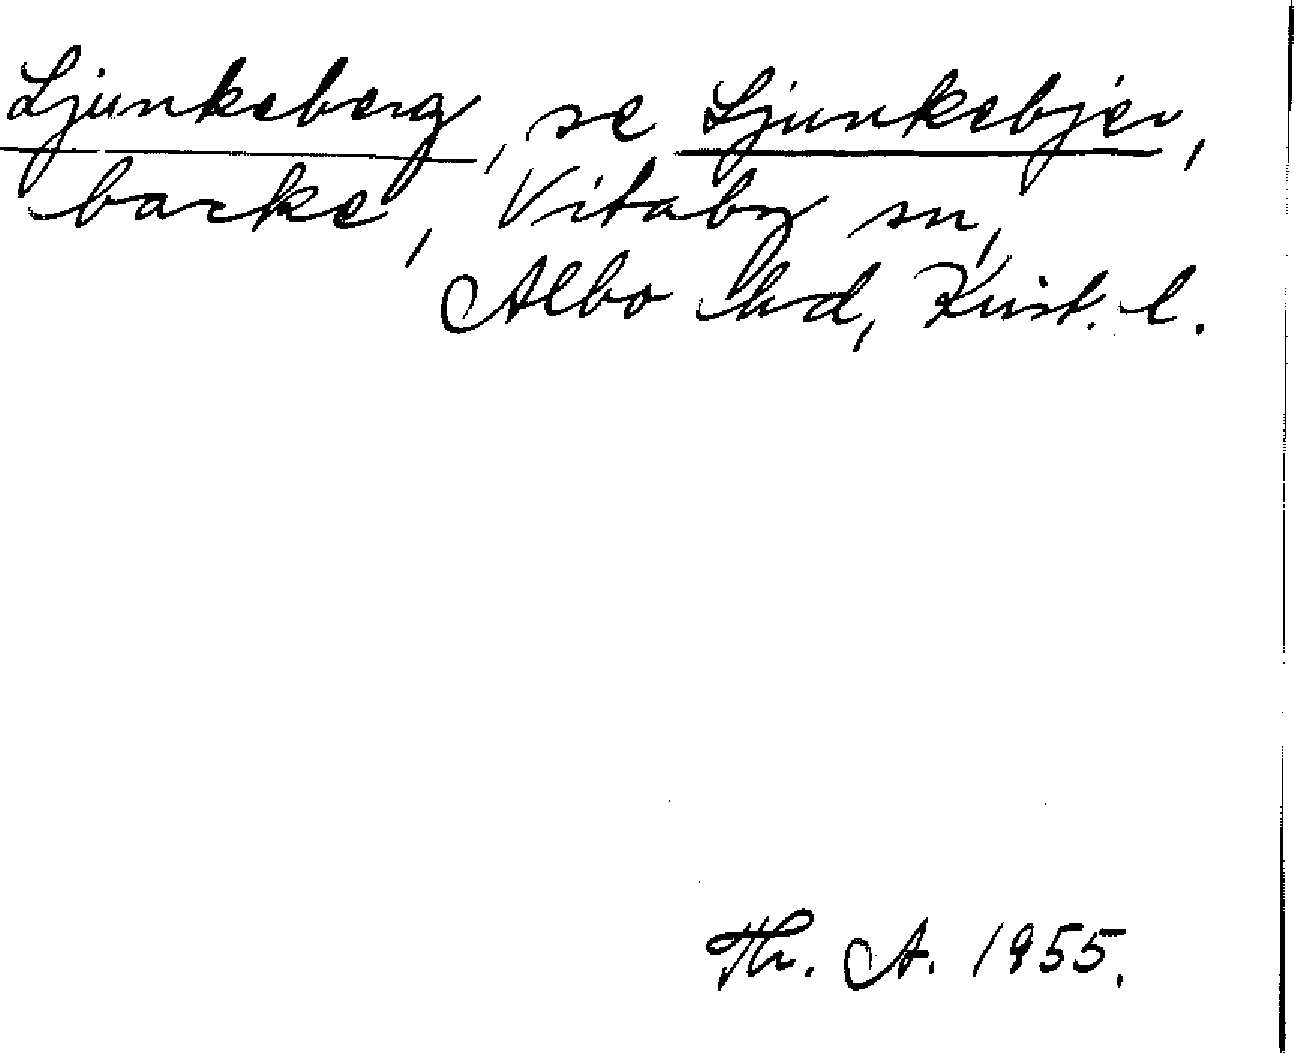 Ljunkeberg, se Ljunkebjer,
backe, Vitaby sn,
Albo hd, Krist. l.
Th. A. 1955.